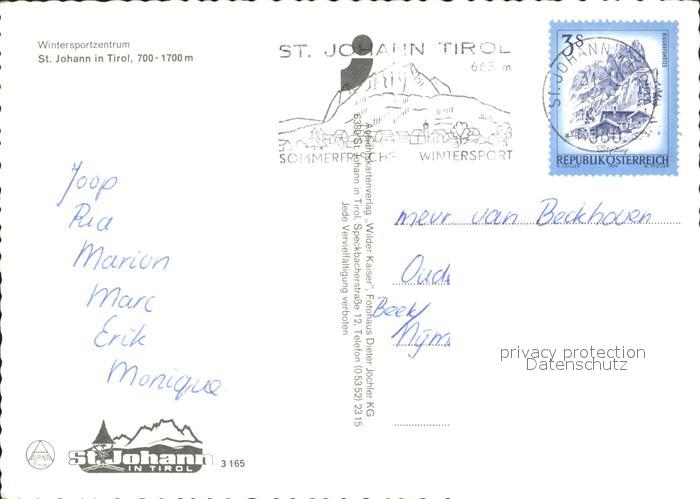 Wintersportzentrum
St. Johann in Tirol, 700-1700 m
ST. JOHANN TIROL
663 m
SOMMERFRISCHE WINTERSPORT
3 S
REPUBLIK ÖSTERREICH
ST. JOHANN
Ansichtskartenverlag „Wilder Kaiser“, Fotohaus Dieter Jöchler KG
6380 St. Johann in Tirol, Speckbacherstraße 12, Telefon (0 53 52) 2315
Jede Vervielfältigung verboten
Joop
Ria
Marion
Marc
Erik
Monique
mevr van Beckhoven
Oud
Beek
Nijm
privacy protection
Datenschutz
ALPINA
St. Johann
IN TIROL
3 165